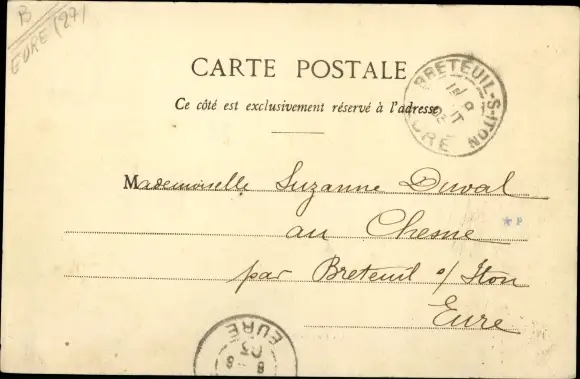 B
EURE (27)
CARTE POSTALE
Ce côté est exclusivement réservé à l'adresse
BRETEUIL-S-ITON
EURE
Mademoiselle Suzanne Duval
au Chesne
par Breteuil s/ Iton
Eure
EURE
8 - 8
03